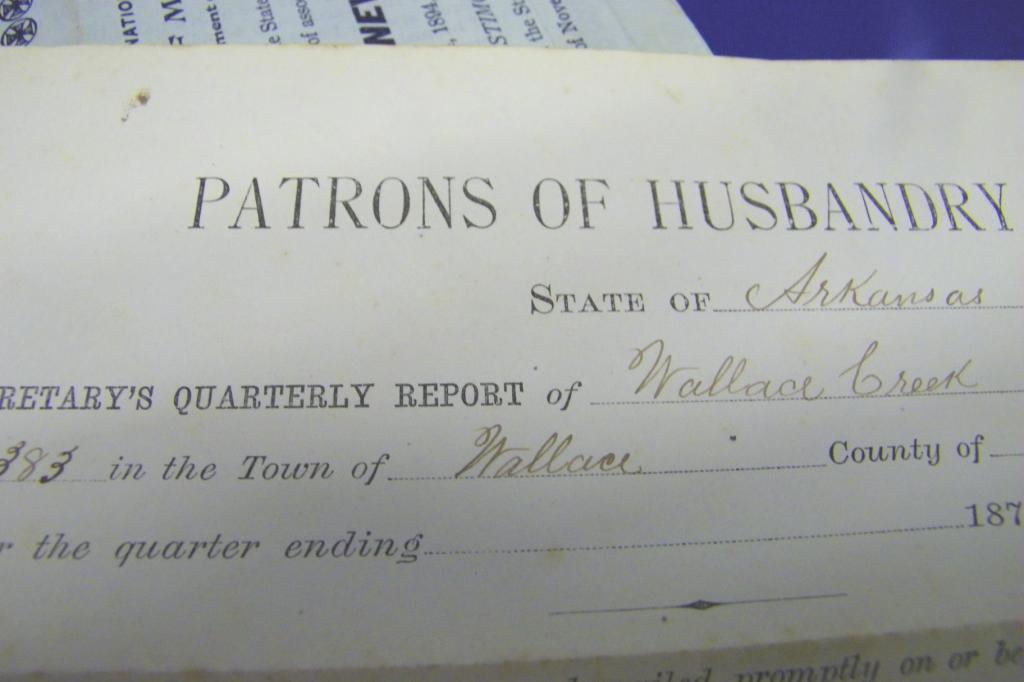 PATRONS OF HUSBANDRY
STATE OF Arkansas
RETARY'S QUARTERLY REPORT of Wallace Creek
383 in the Town of Wallace County of
the quarter ending 187
promptly on or be
NEW
1894
the State
of assoc
ment
the St
of Nove